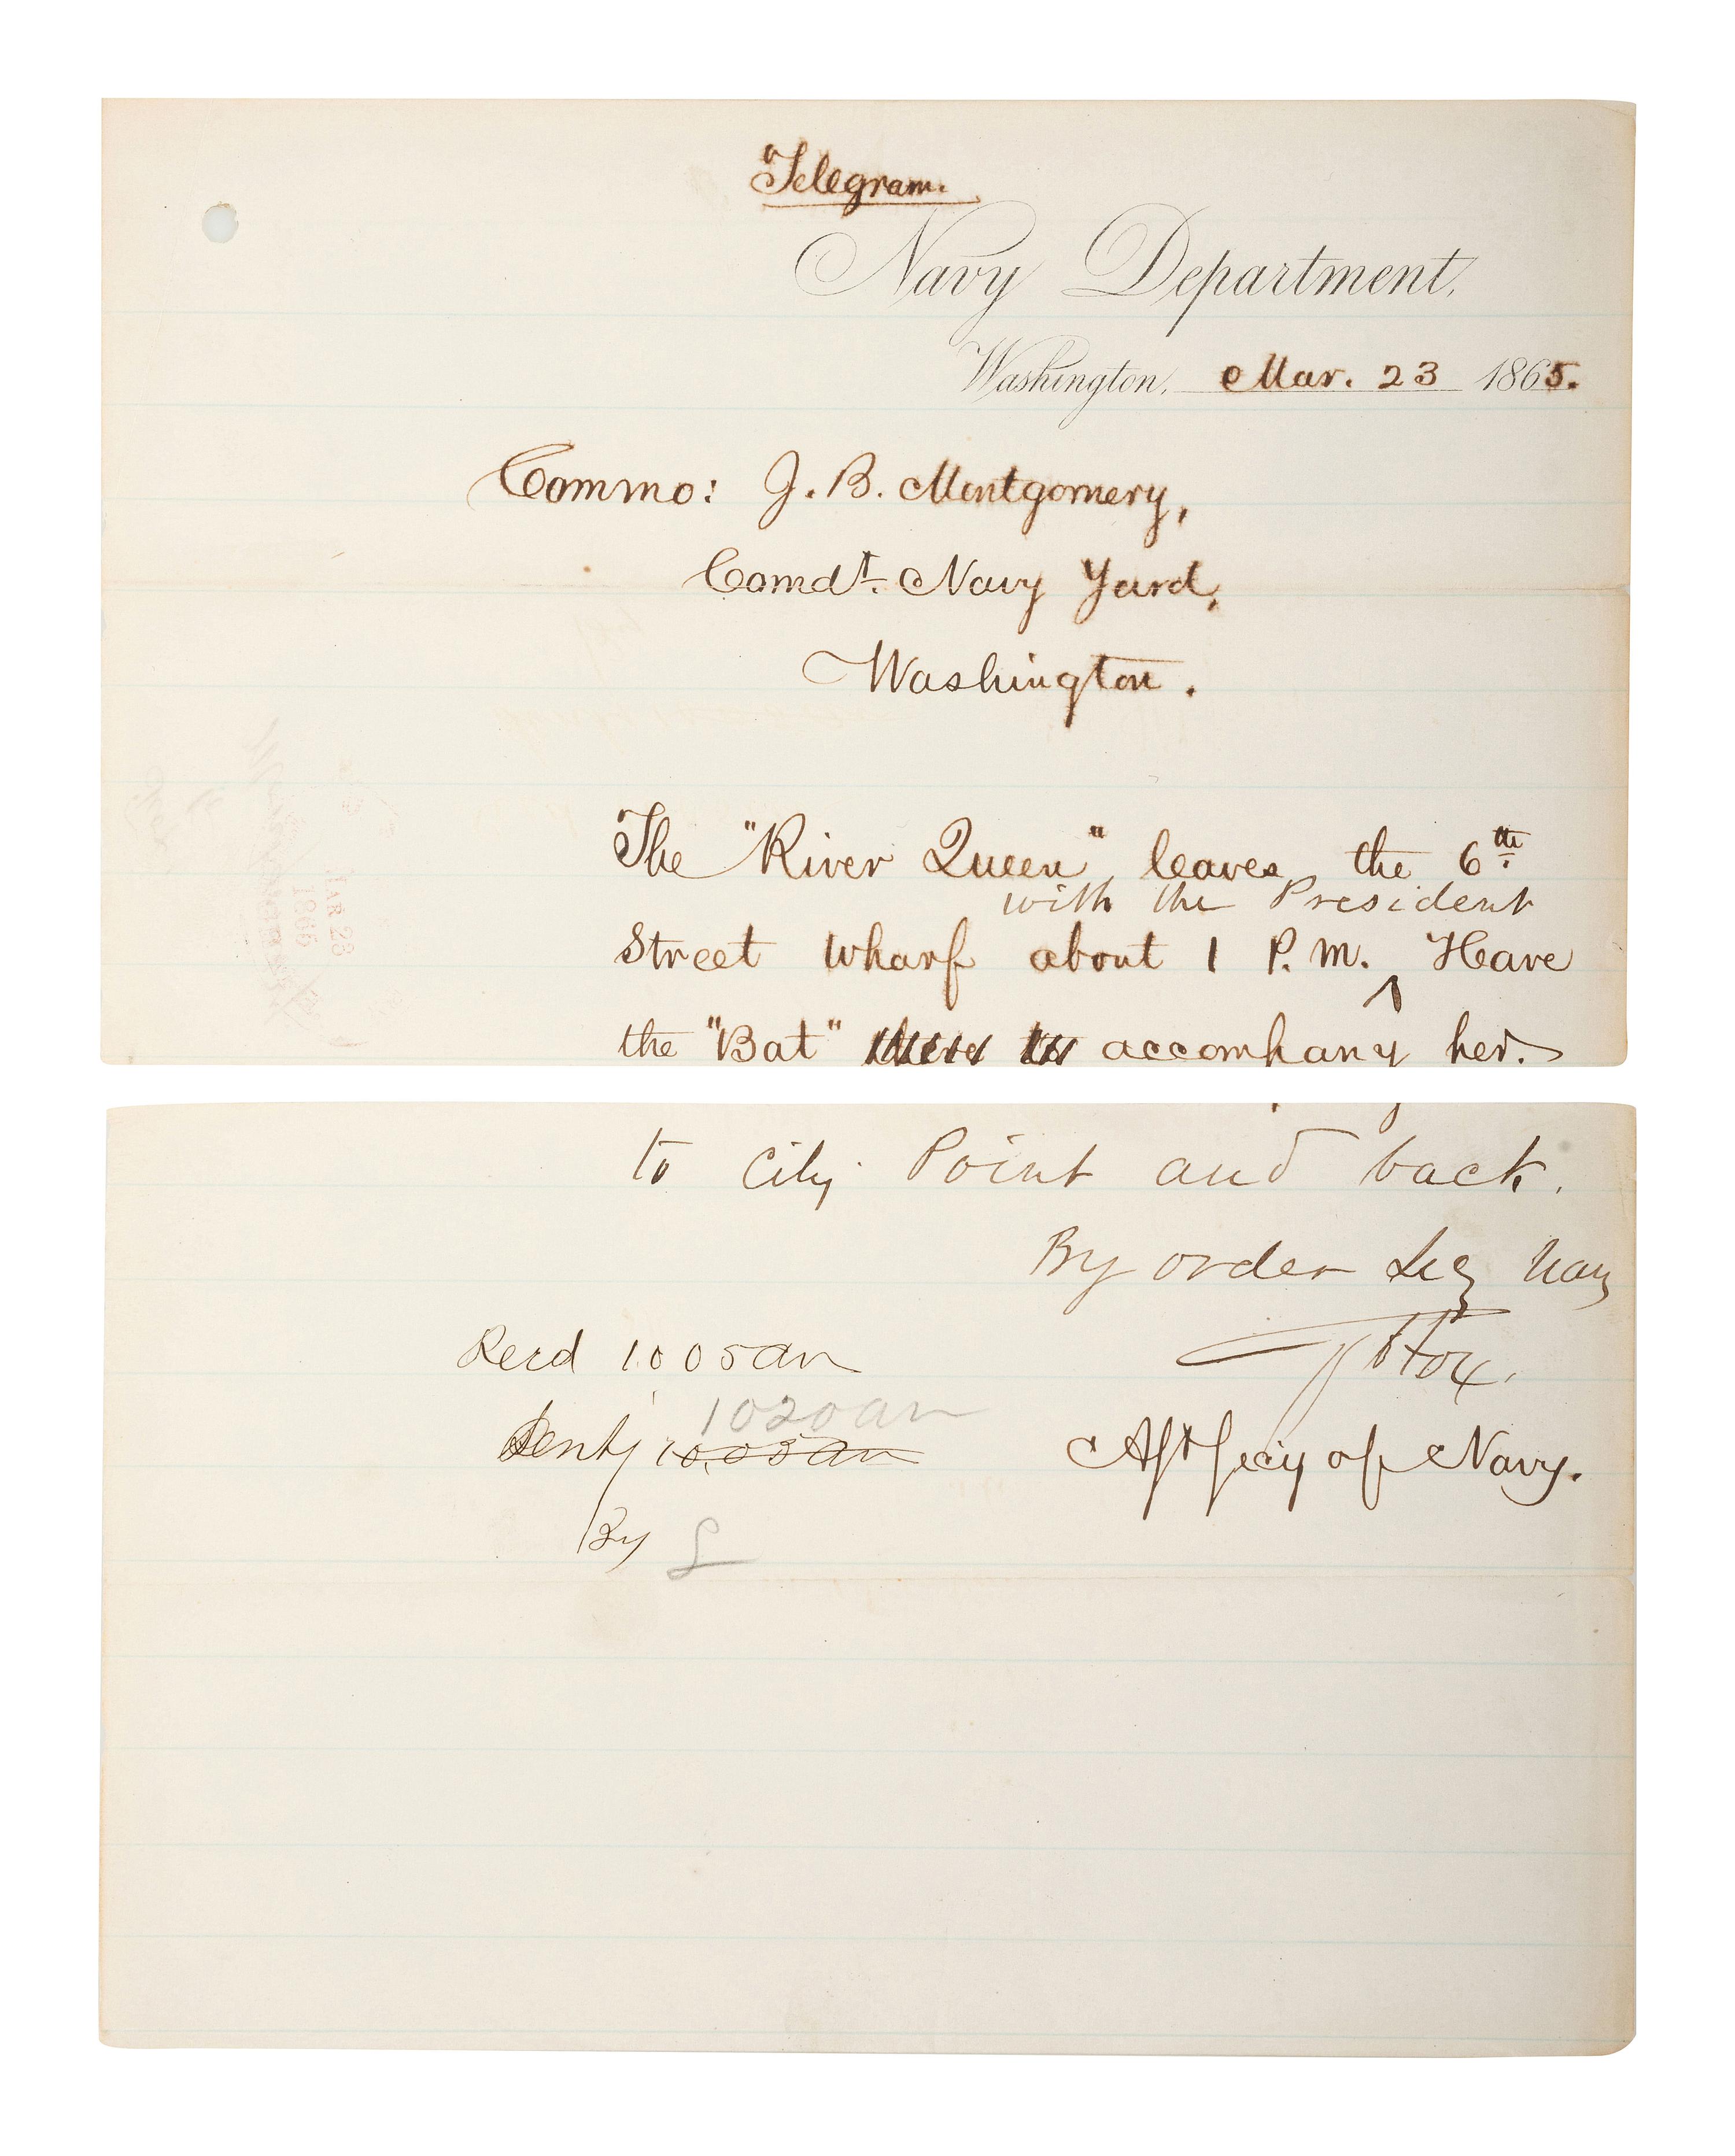 Telegram.
Navy Department,
Washington, Mar. 23 1865.
Commo: J. B. Montgomery,
Comdt. Navy Yard,
Washington.
The "River Queen" leaves the 6th
with the President
Street wharf about 1 P. M. ^ Have
the "Bat" there to accompany her.
to City Point and back.
By order Secy Navy
Recd 10 05 am
GVFox.
1020 am
Sent 10.05 am
Asst Secy of Navy.
By L
MAR 23
1865